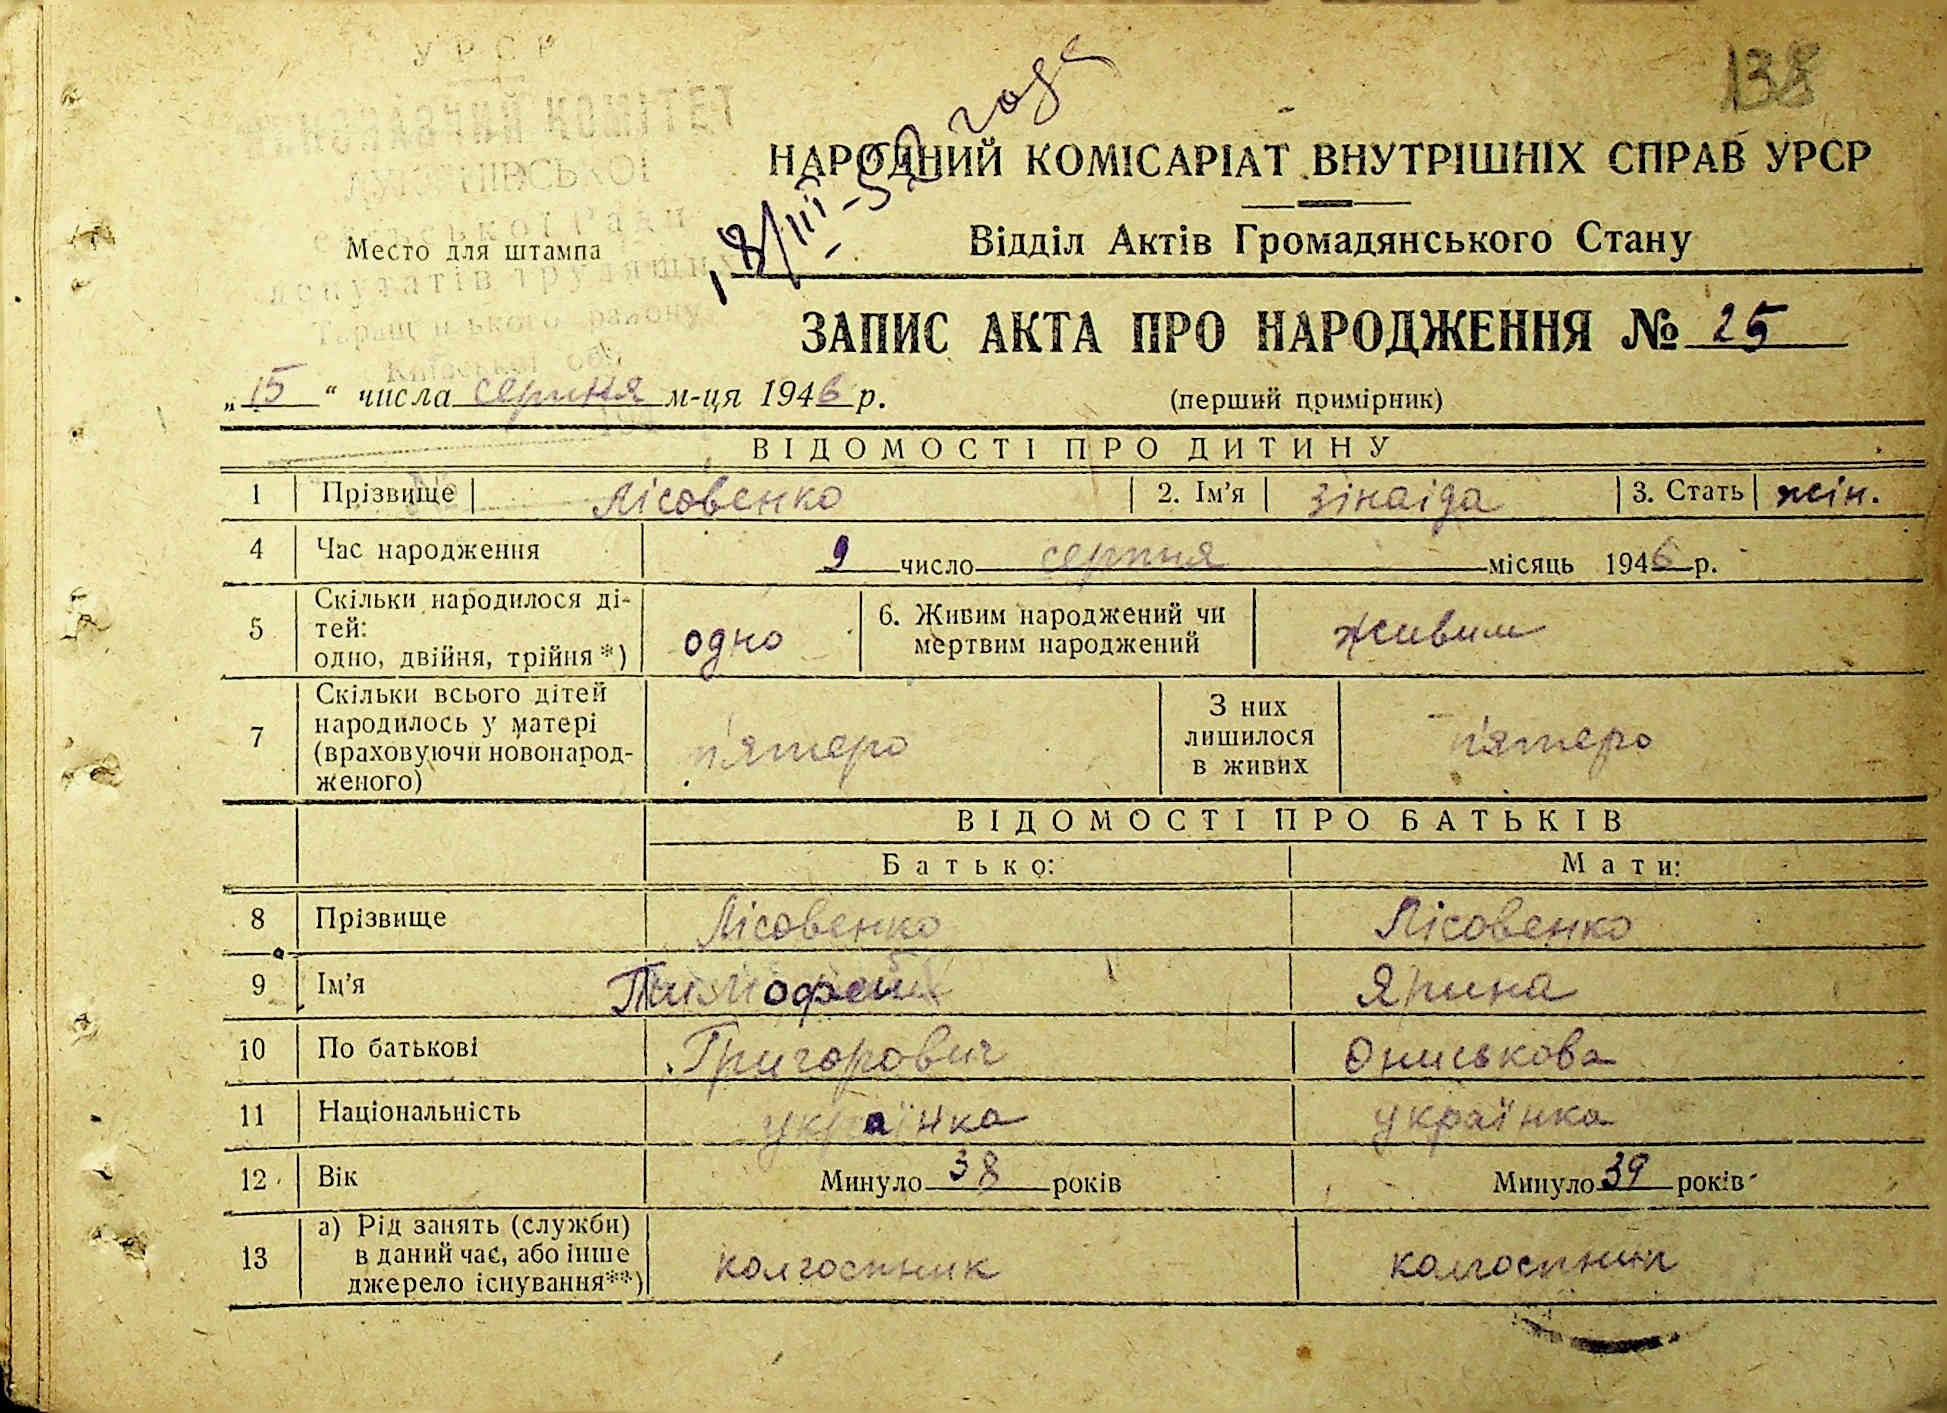 138
УРСР
ВИКОНАВЧИЙ КОМІТЕТ
сільської Ради
депутатів трудящих
Таращанського району
Київської обл.
Место для штампа
18/III-59 года
НАРОДНИЙ КОМІСАРІАТ ВНУТРІШНІХ СПРАВ УРСР
Відділ Актів Громадянського Стану
ЗАПИС АКТА ПРО НАРОДЖЕННЯ № 25
„15“ числа серпня м-ця 1946 р. (перший примірник)
ВІДОМОСТІ ПРО ДИТИНУ
1 Прізвище Лісовенко 2. Ім'я Зінаіда 3. Стать жін.
4 Час народження 9 число серпня місяць 1946 р.
5 Скільки народилося ді-
тей:
одно, двійня, трійня*) одно 6. Живим народжений чи
мертвим народжений живим
7 Скільки всього дітей
народилось у матері
(враховуючи новонарод-
женого) п'ятеро З них
лишилося
в живих п'ятеро
ВІДОМОСТІ ПРО БАТЬКІВ
Батько: Мати:
8 Прізвище Лісовенко Лісовенко
9 Ім'я Тимофей Ярина
10 По батькові Григорович Ониськова
11 Національність українка українка
12 Вік Минуло 38 років Минуло 39 років
13 а) Рід занять (служби)
в даний час, або інше
джерело існування**) колгоспник колгоспник